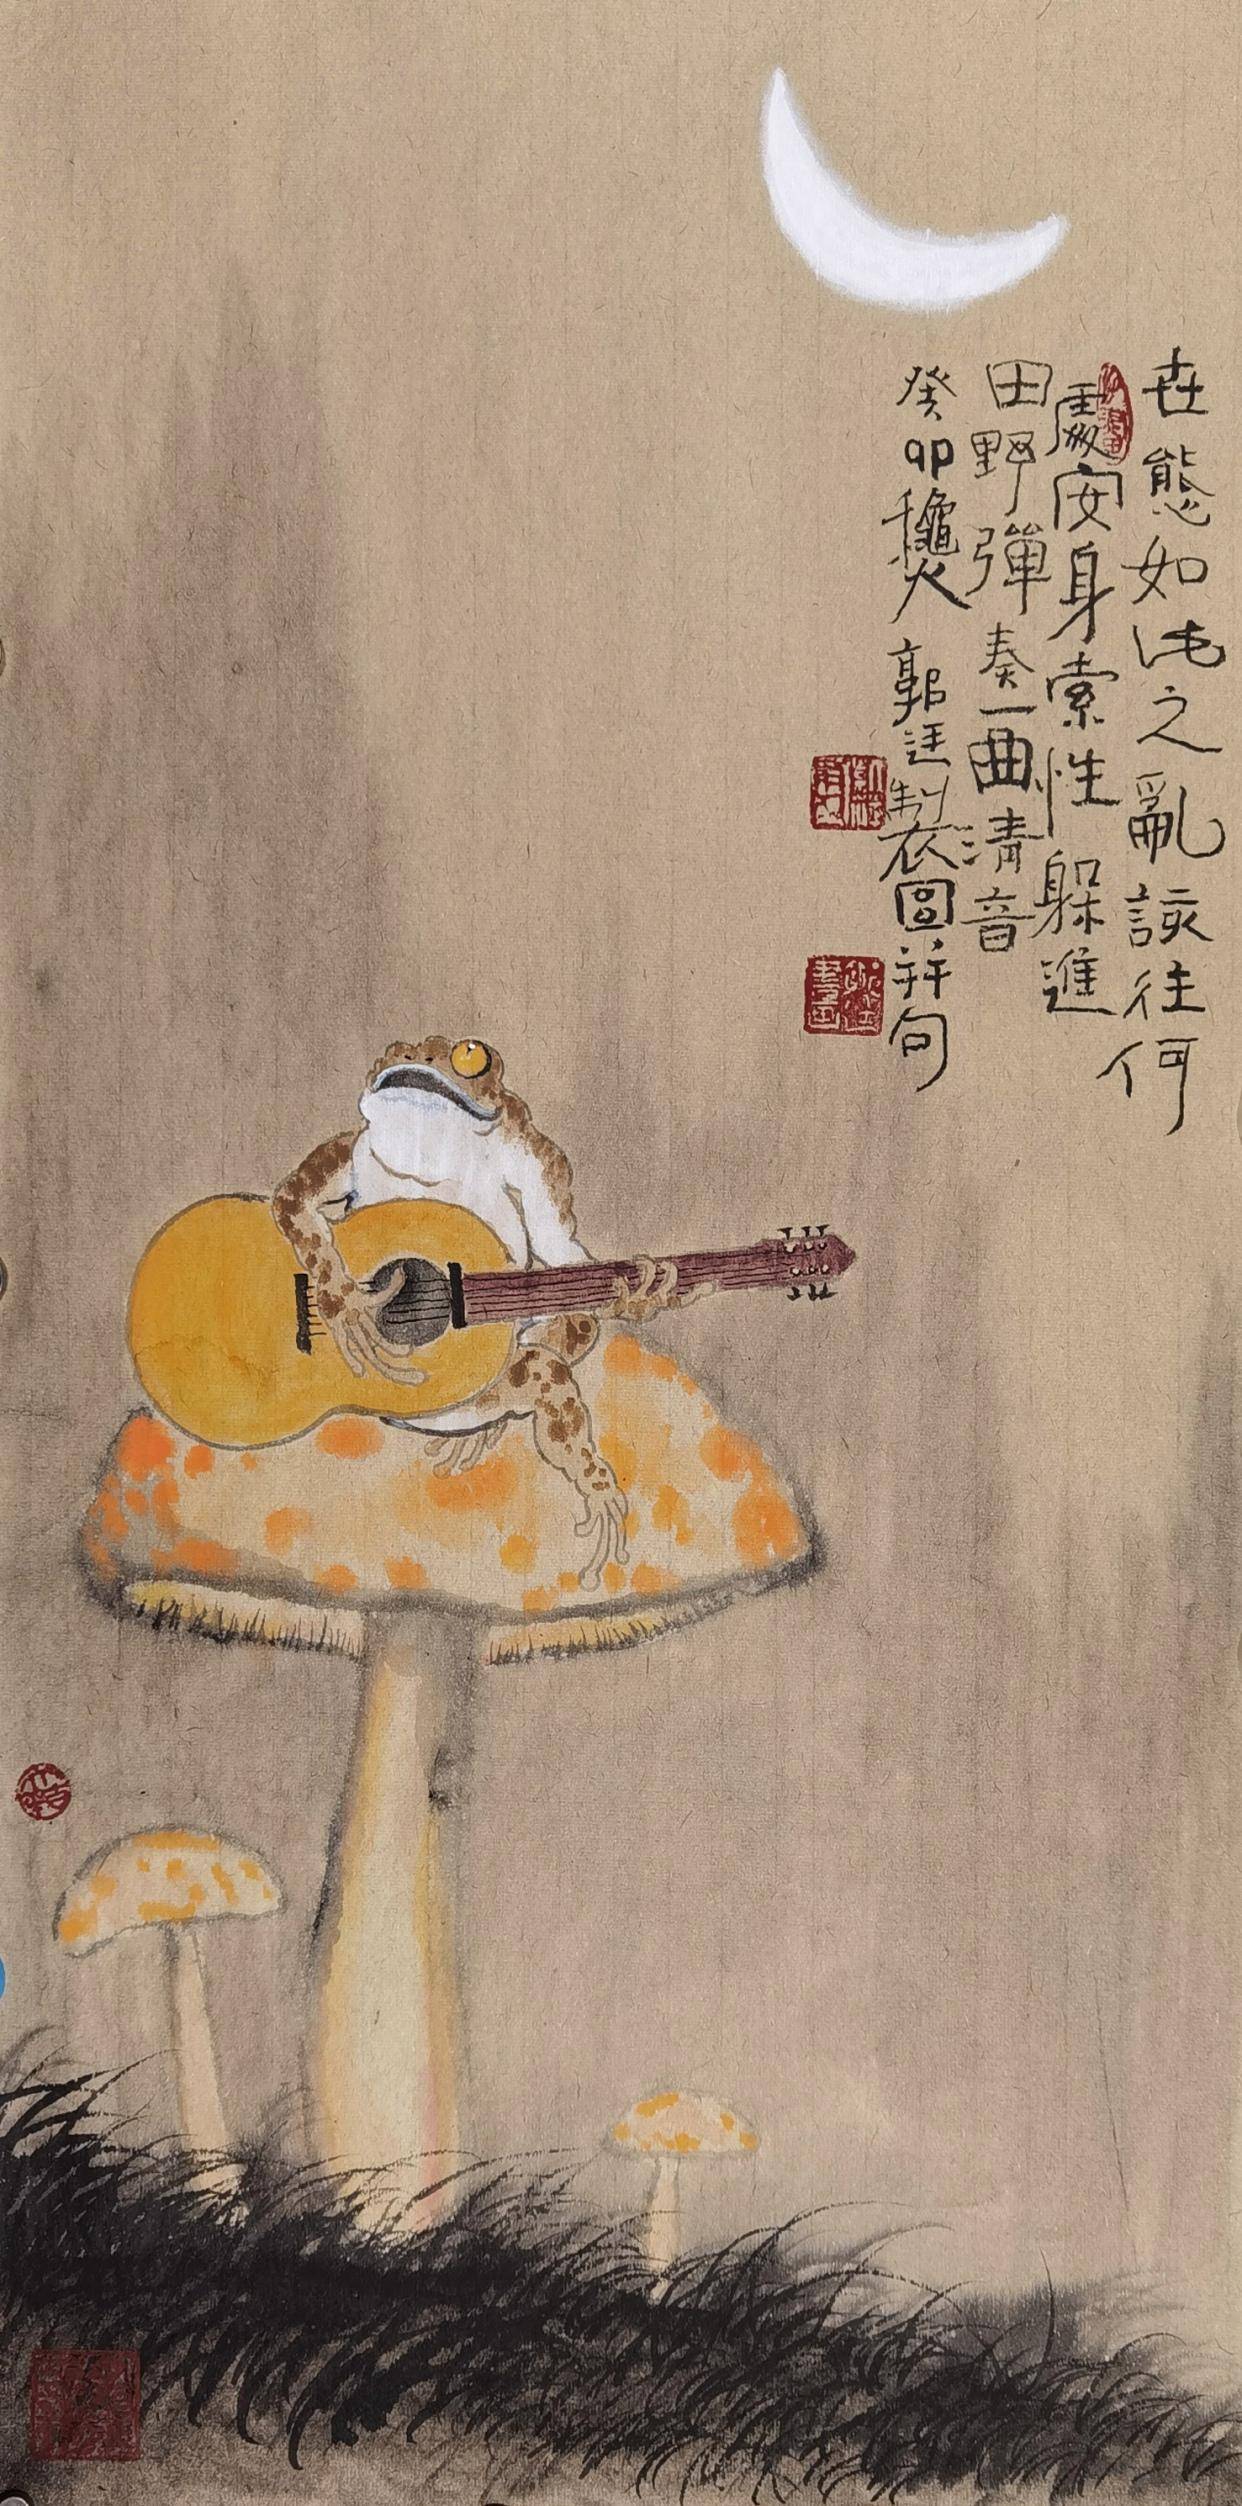 世態如此之亂該往何
處安身索性躲進
田野彈奏一曲清音
癸卯龝郭製圖并句